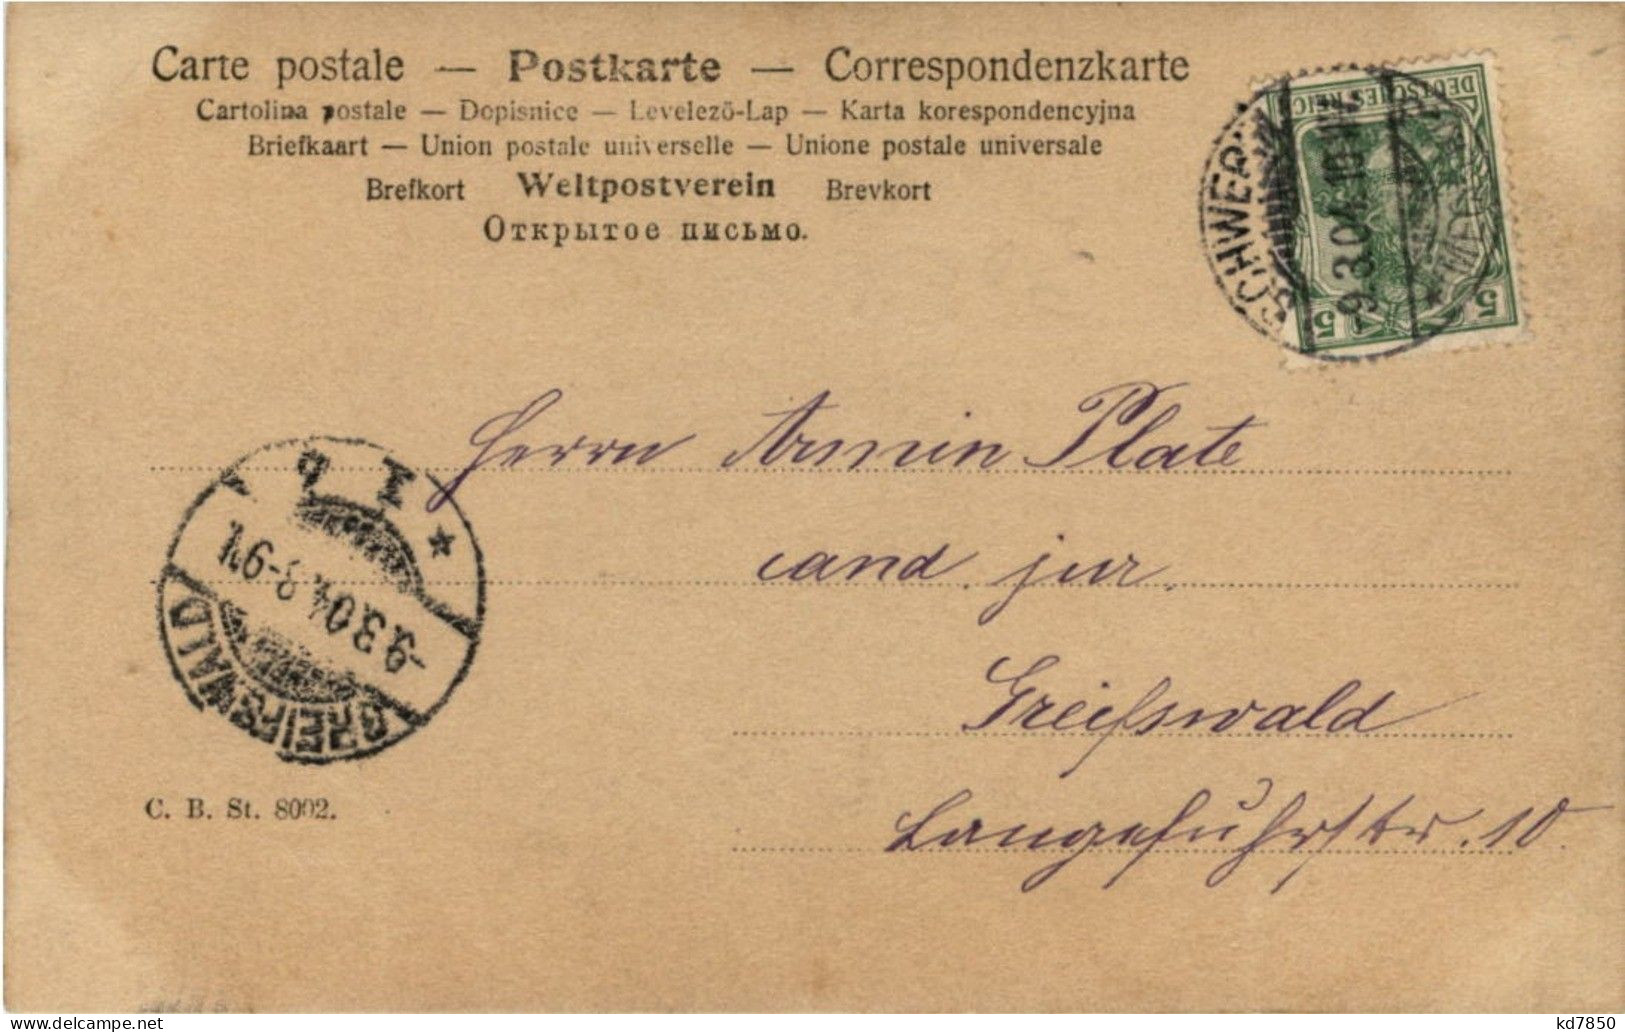 Carte postale — Postkarte — Correspondenzkarte
Cartolina postale — Dopisnice — Levelező-Lap — Karta korespondencyjna
Briefkaart — Union postale universelle — Unione postale universale
Brefkort Weltpostverein Brevkort
Открытое письмо.
DEUTSCHES REICH
5 5
SCHWERIN
-9.3.04. 10
Herrn Armin Plate
cand. jur.
Greifswald
Langefuhrstr. 10.
GREIFSWALD
-9.3.04. 8-9N.
* 1 b
C. B. St. 8002.
kd7850